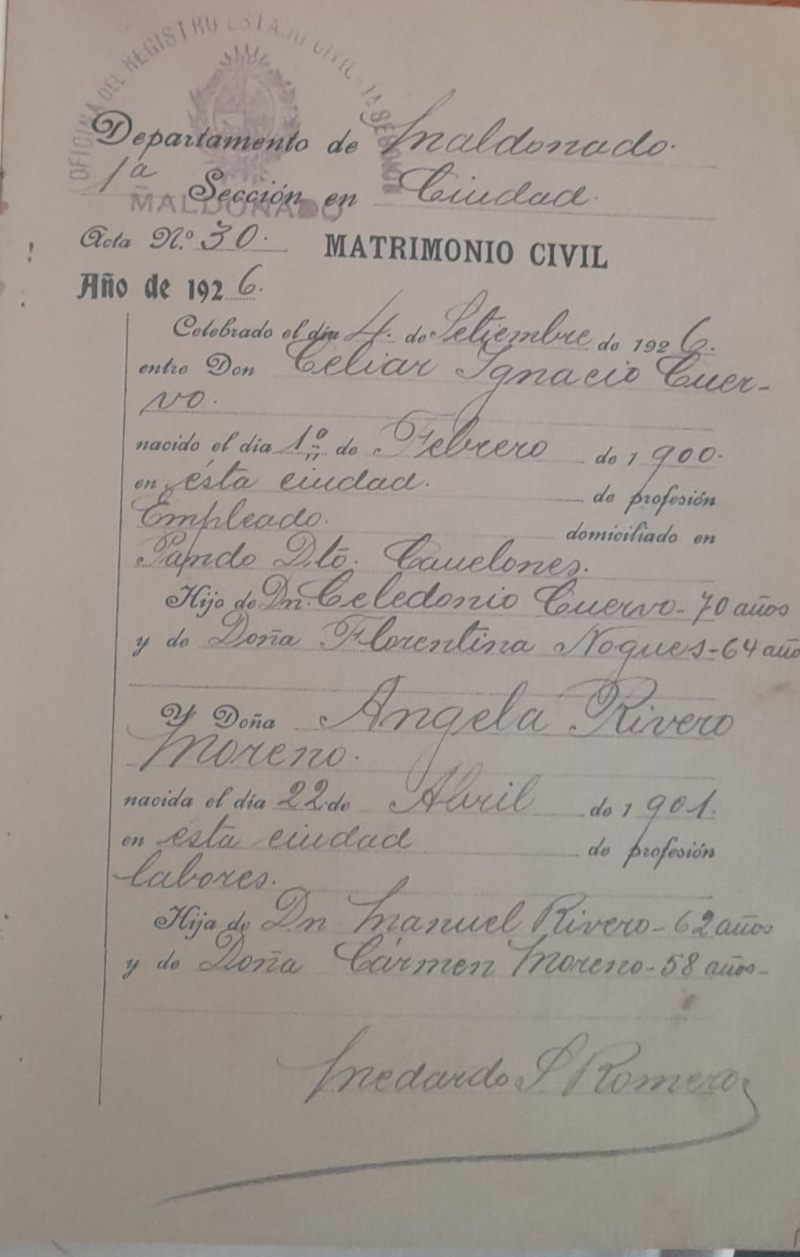 OFICINA DEL REGISTRO ESTADO CIVIL - 1ª SECCION
MALDONADO
Departamento de Maldonado.
1ª Sección en Ciudad.
Acta N.º 30. MATRIMONIO CIVIL
Año de 1926.
Celebrado el día 4. de Setiembre de 1926.
entre Don Celiar Ignacio Cuer-
vo.
nacido el día 1º de Febrero de 1900.
en ésta ciudad. de profesión
Empleado. domiciliado en
Pando Dtō. Canelones.
Hijo de Dn. Celedonio Cuervo - 70 años
y de Doña Florentina Nogues - 64 año
Y Doña Angela Rivero
Moreno.
nacida el día 22 de Abril de 1901.
en ésta ciudad de profesión
labores.
Hija de Dn Manuel Rivero - 62 años
y de Doña Cármen Moreno - 58 años -
Medardo S Romero